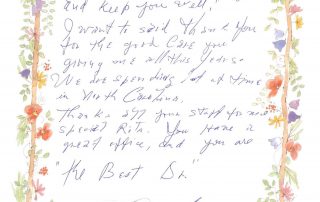 and keep you well,"
I want to said thank you
for the good care you
giving me all this years.
We are spending lot at time
in North Carolina.
Thanks all your staff for
special Rita. You have a
great office, and you are
"The Best Dr.